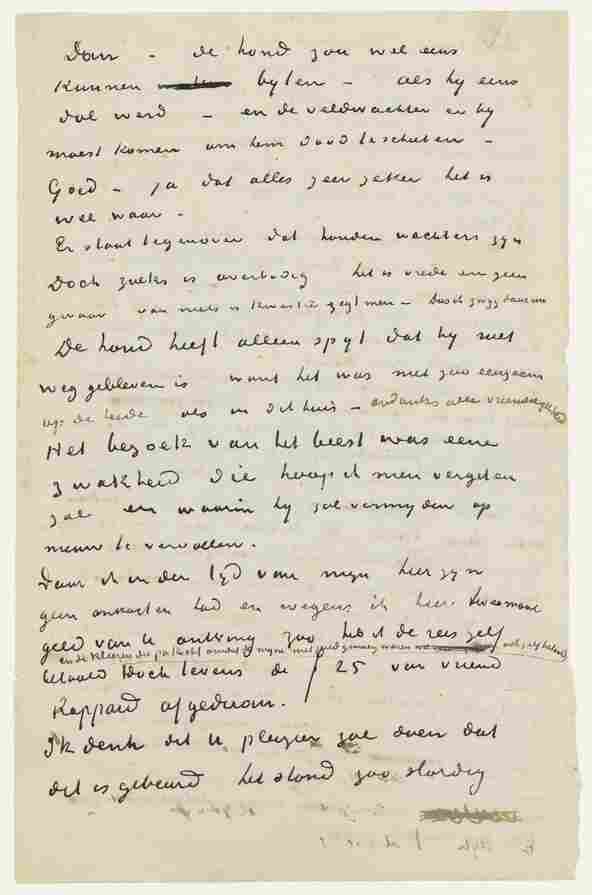 Dan – de hond zou wel eens
kunnen byten – als hy eens
dol werd – en de veldwachter er by
moest komen om hem dood te schieten –
Goed – ja dat alles zeer zeker het is
wel waar –
Er staat tegenover dat honden wachters zyn
Doch zulks is overbodig het is vrede en geen
gevaar van niets is kwestie zegt men – Dus ik zwyg daarom
De hond heeft alleen spyt dat hy niet
weg gebleven is want het was niet zoo eenzaam
op de heide als in dit huis – ondanks alle vriendelykheid
Het bezoek van het beest was eene
zwakheid die hoop ik men vergeten
zal en waarin hy zal vermyden op
nieuw te vervallen.
Daar ik in den tyd van myn hier zyn
geen onkosten had en wegens ik hier tweemaal
geld van U ontving zoo heb ik de reis zelf
en de kleeren die pa kocht omdat de myne niet goed genoeg waren ook zelf betaald
betaald doch tevens de ƒ 25 van vriend
Rappard afgedaan.
Ik denk dit U plezier zal doen dat
dit is gebeurd het stond zoo slordig